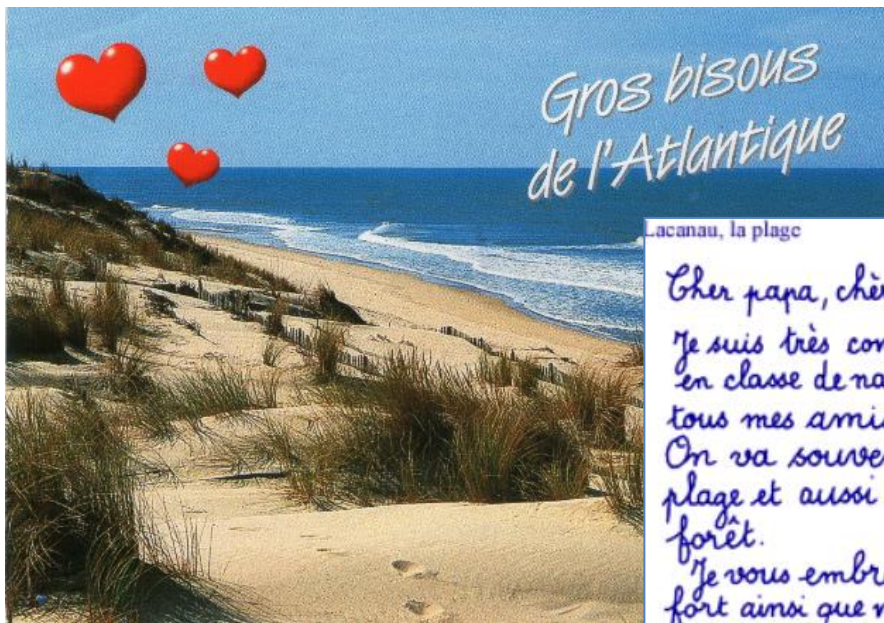 Gros bisous
de l'Atlantique
Lacanau, la plage
Cher papa,
Je suis très
en classe de
tous mes
On va
plage et aussi
forêt.
Je vous
fort ainsi que